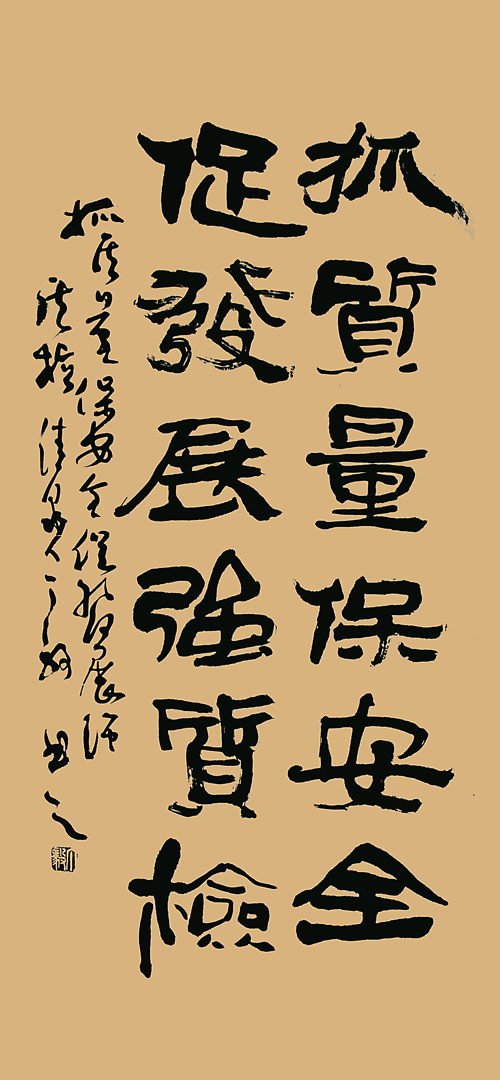 抓質量保安全
促發展強質檢
抓质量保安全促發展强
质检